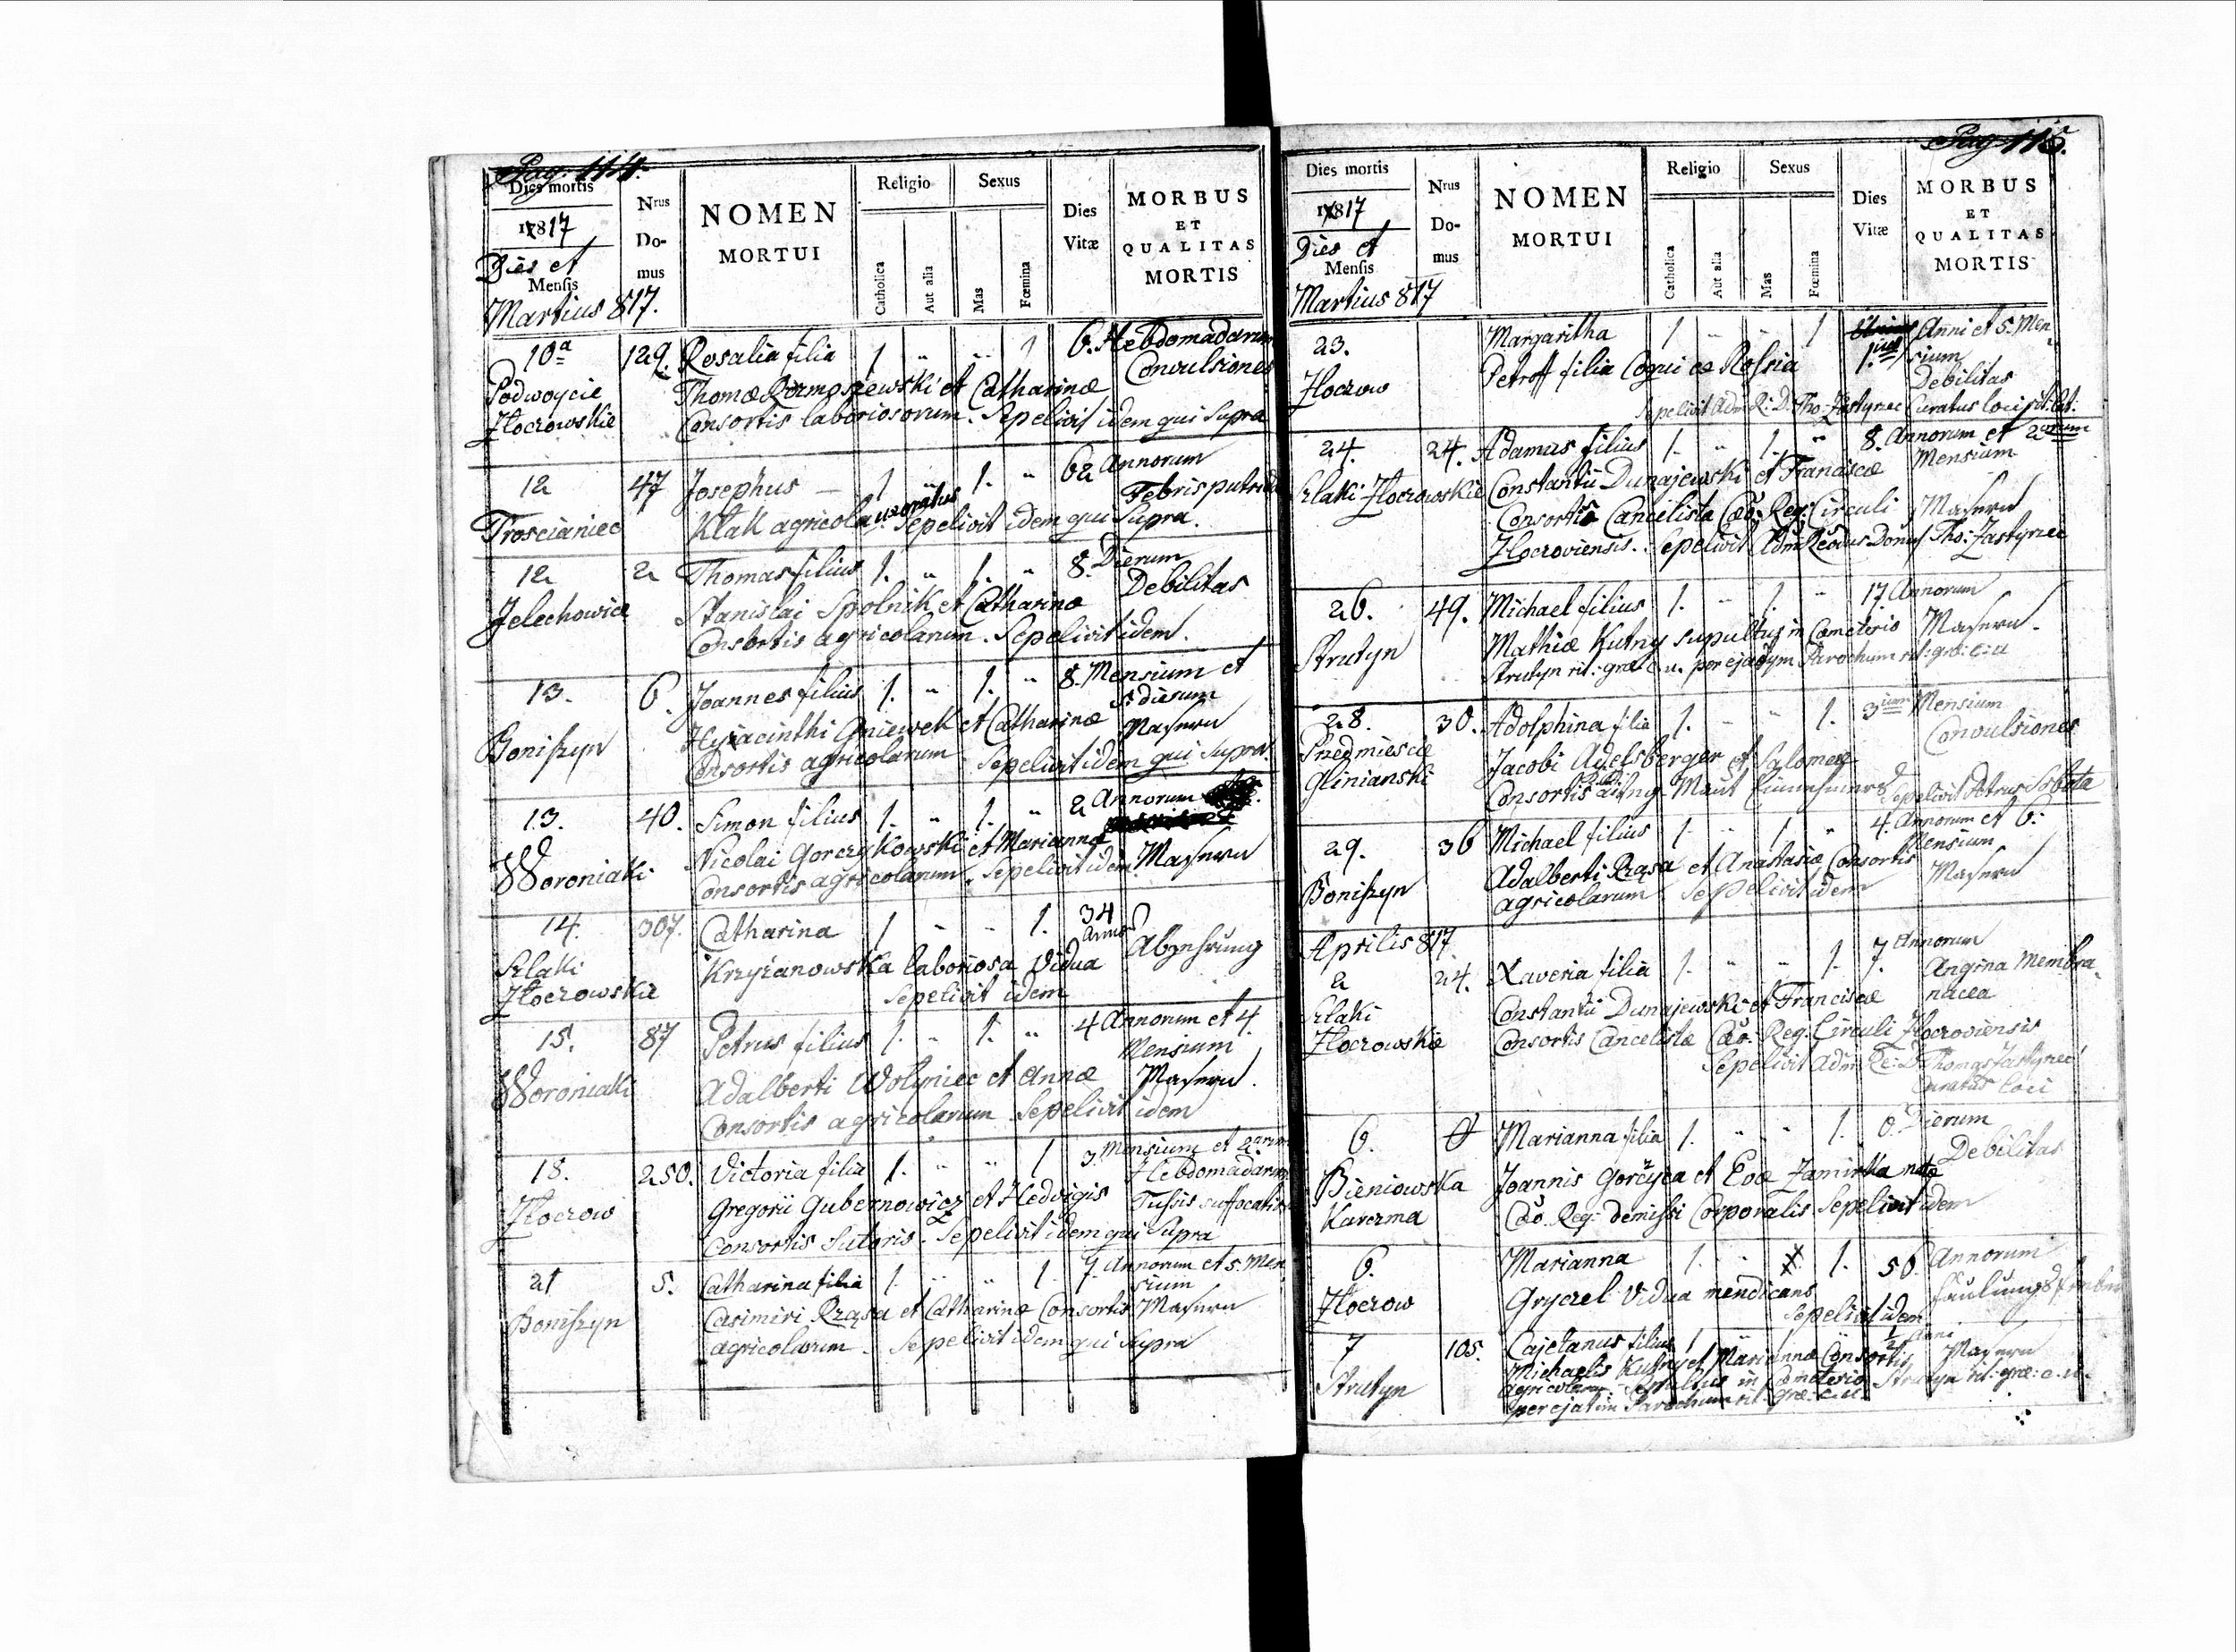 Pag. 114.
Dies mortis
Nrus Domus
NOMEN MORTUI
Religio
Sexus
Catholica
Aut alia
Mas
Fœmina
Dies Vitæ
MORBUS ET QUALITAS MORTIS
1817
Dies et
Mensis
Martius 817.
10a 129. Rosalia filia 1 " " 1 6. Hebdomadarum
Podwoycie Thomæ et Catharinæ Convulsiones
Złoczowskie Consortis laboriosorum. Sepelivit idem qui Supra
12 47 Josephus — 1 " 1. " 62 Annorum
Febris putrida
Troscianiec Kłak agricola uxoratus Sepelivit idem qui Supra.
12 2 Thomas filius 1. " 1. " 8. Dierum
Jelechowice Stanislai Spolnik et Catharinæ Debilitas
Consortis agricolarum. Sepelivit idem.
13. 6. Joannes filius 1. " 1. " 8. Mensium et
5. dierum
Boniszyn Hyacinthi Gniewek et Catharinæ Masern
Consortis agricolarum Sepelivit idem qui Supra
13. 40. Simon filius 1. " 1. " 2 Annorum
Woroniaki Nicolai Gorczykowski et Mariannæ Masern
Consortis agricolarum. Sepelivit idem
14. 307. Catharina 1 " " 1. 34 Anno
Szlaki Krzyżanowska laboriosa Vidua Abzehrung
Złoczowskie Sepelivit idem
15. 87 Petrus filius 1. " 1. " 4 Annorum et 4.
Mensium
Woroniaki Adalberti Wołyniec et Annæ Masern.
Consortis agricolarum Sepelivit idem
18. 250. Victoria filia 1. " " 1 3. Mensium et 2arum
Hebdomadarum
Złoczow Gregorii Gubernowicz et Hedvigis Tussis suffocativa
Consortis Sutoris. Sepelivit idem qui Supra
21 5. Catharina filia 1. " " 1 7. Annorum et 5. Men
sium
Boniszyn Casimiri Rząsa et Catharinæ Consortis Masern
agricolarum. Sepelivit idem qui Supra
Pag 115.
Dies mortis
Nrus Domus
NOMEN MORTUI
Religio
Sexus
Catholica
Aut alia
Mas
Fœmina
Dies Vitæ
MORBUS ET QUALITAS MORTIS
1817
Dies et
Mensis
Martius 817
23. Margaritha 1 " " 1 1.ius Anni et 5. Men
sium
Złoczow Petroff filia Coqui ex Rossia Debilitas
Sepelivit Adm. R. D. Tho. Zastyrzec Curatus loci rit. lat.
24. 24. Adamus filius 1. " 1. " 8. Annorum et 2orum
Mensium
Szlaki Złoczowskie Constantii Dunajewski et Franciscæ
Consortis Cancelistæ Cæs. Reg. Circuli Masern
Złoczoviensis. Sepelivit Adm. Rdus Donus Tho. Zastyrzec
26. 49. Michael filius 1. " 1. " 17 Annorum
Strutyn Mathiæ Kutny sepultus in Cœmeterio Masern.
Strutyn rit. græ. c. u. per ejatym Parochum rit. græ. c. u
28. 30. Adolphina filia 1. " " 1. 3ium Mensium
Przedmiescie Convulsiones
Glinianski Jacobi Adelsberger et Salomeæ
Consortis Maut Einnehmers Sepelivit Petrus Sobota
29. 36 Michael filius 1 " 1 " 4. Annorum et 6.
Mensium
Boniszyn Adalberti Rząsa et Anastasiæ Consortis Masern
agricolarum Sepelivit idem
Aprilis 817.
2 24. Xaveria filia 1. " " 1. 7. Annorum
Angina Membra
nacea
Szlaki Constantii Dunajewski et Franciscæ
Złoczowskie Consortis Cancelistæ Cæs. Reg. Circuli Złoczoviensis
Sepelivit Adm. Re. D. Thomas Zastyrzec
Curatus loci
6. 0 Marianna filia 1. " " 1. 6. Dierum
Debilitas
Bieniowska Joannis Gorczyca et Evæ Zamirska natæ
Karczma Cæs. Reg. demissi Corporalis Sepelivit idem
6. Marianna 1. " 1. 56 Annorum
Złoczow Gryczel Vidua mendicans
Sepelivit idem
7 105. Cajetanus filius 1 " 1 " ½ Anni
Strutyn Michaelis Kutny et Mariannæ Consortis Masern
agricolarum. Sepultus in Cœmeterio Strutyn rit. græ. c. u.
per ejatim Parochum rit. græ. c. u.